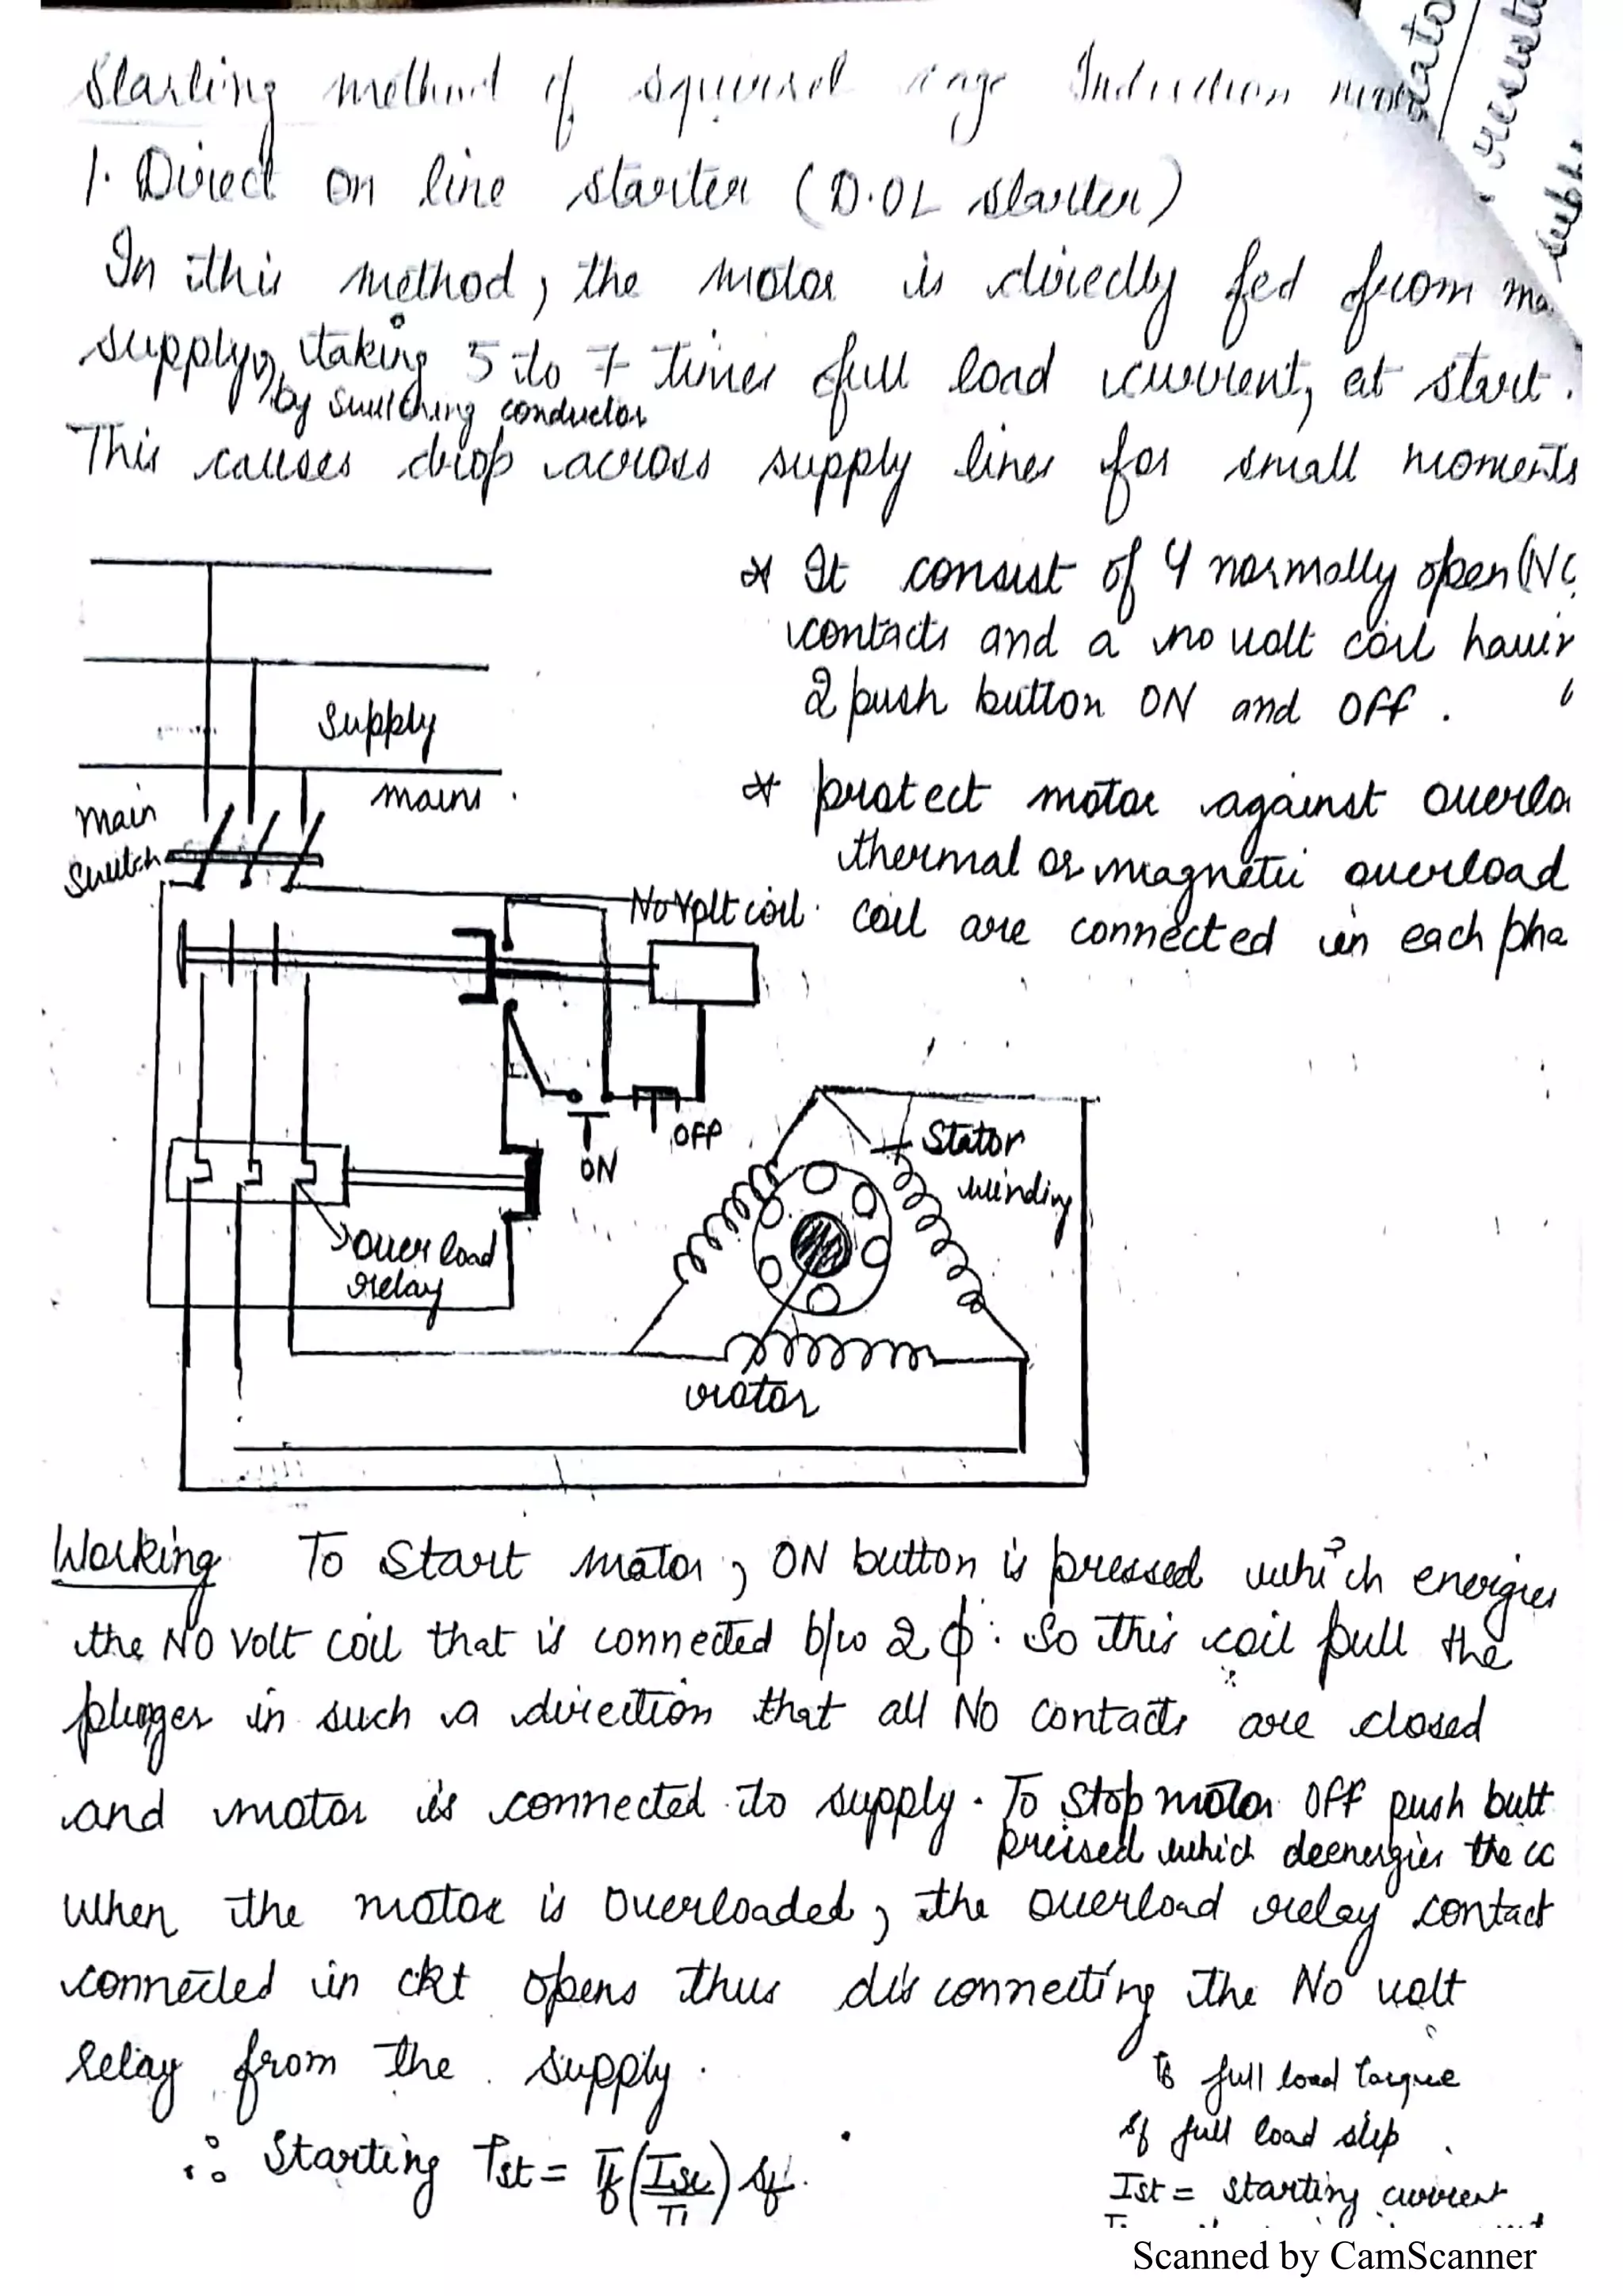 Starting method of squirrel cage Induction
1. Direct on line starter (D.OL starter)
In this method, the motor is directly fed from
supply, taking 5 to 7 times full load current, at start.
by switching conductor
This causes drop across supply lines for small moments
* It consist of 4 normally open (NC
contacts and a no volt coil havin
2 push button ON and OFF.
* protect motor against overloa
thermal or magnetic overload
coil are connected in each pha
supply
mains
Main
Switch
No Volt coil
ON
OFF
over load
relay
Stator
winding
rotor
Working To Start motor, ON button is pressed which energies
the NO Volt coil that is connected b/w 2 ϕ. So this coil pull the
plunger in such a direction that all No contacts are closed
and motor is connected to supply. To Stop motor OFF push butt
pressed which deenergies the co
When the motor is overloaded, the overload relay contact
connected in ckt opens thus disconnecting the No volt
relay from the supply.
∴ Starting Tst = Tf (Isc/ ) sf.
Tf full load torque
sf full load slip
Ist = starting current
stato
resista
Scanned by CamScanner